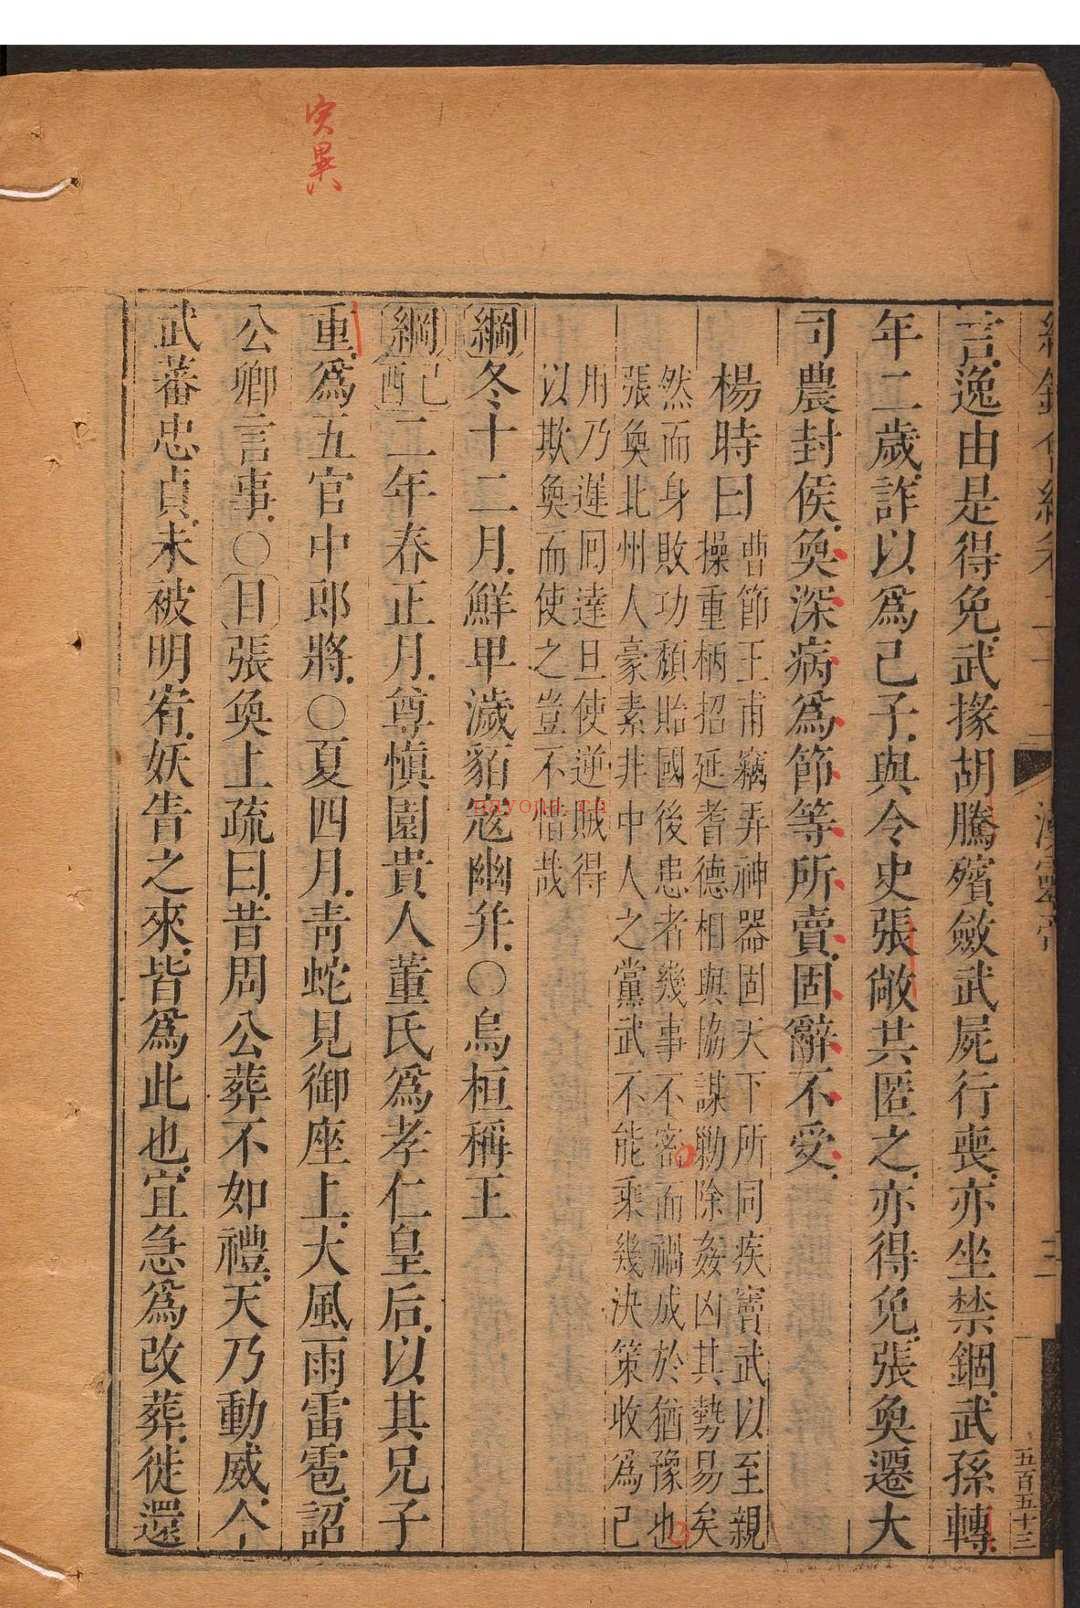 言逸由是得免武掾胡騰殯斂武屍行喪亦坐禁錮武孫轉
年二歲詐以爲己子與令史張敞共匿之亦得免張奐遷大
司農封侯奐深病爲節等所賣固辭不受
楊時曰
曹節王甫竊弄神器固天下所同疾竇武以至親
操重柄招延耆德相與協謀勦除姦凶其勢易矣
然而身敗功頹貽國後患者幾事不密而禍成於猶豫也
張奐北州人豪素非中人之黨武不能乘幾決策收爲己
用乃遲囘達旦使逆賊得
以欺奐而使之豈不惜哉
綱冬十二月鮮卑濊貊寇幽并○烏桓稱王
綱己酉二年春正月尊慎園貴人董氏爲孝仁皇后以其兄子
重爲五官中郎將○夏四月青蛇見御座上大風雨雷雹詔
公卿言事○目張奐上疏曰昔周公葬不如禮天乃動威今
武蕃忠貞未被明宥妖眚之來皆爲此也宜急爲改葬徙還
漢靈帝
五百五十三
災異